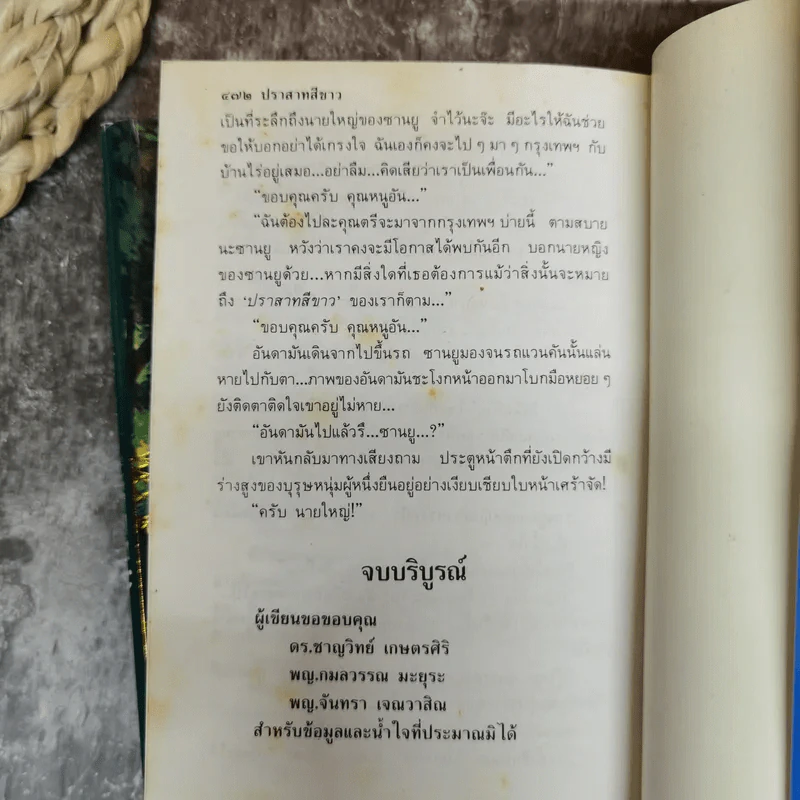 ๔๗๒ ปราสาทสีขาว
เป็นที่ระลึกถึงนายใหญ่ของซานยู จำไว้นะจ๊ะ มีอะไรให้ฉันช่วย
ขอให้บอกอย่าได้เกรงใจ ฉันเองก็คงจะไป ๆ มา ๆ กรุงเทพฯ กับ
บ้านไร่อยู่เสมอ...อย่าลืม...คิดเสียว่าเราเป็นเพื่อนกัน...”
“ขอบคุณครับ คุณหนูอัน...”
“ฉันต้องไปละคุณตรีจะมาจากกรุงเทพฯ บ่ายนี้ ตามสบาย
นะซานยู หวังว่าเราคงจะมีโอกาสได้พบกันอีก บอกนายหญิง
ของซานยูด้วย...หากมีสิ่งใดที่เธอต้องการแม้ว่าสิ่งนั้นจะหมาย
ถึง ‘ปราสาทสีขาว’ ของเราก็ตาม...”
“ขอบคุณครับ คุณหนูอัน...”
อันดามันเดินจากไปขึ้นรถ ซานยูมองจนรถแวนคันนั้นแล่น
หายไปกับตา...ภาพของอันดามันชะโงกหน้าออกมาโบกมือหยอย ๆ
ยังติดตาติดใจเขาอยู่ไม่หาย...
“อันดามันไปแล้วรึ...ซานยู...?”
เขาหันกลับมาทางเสียงถาม ประตูหน้าตึกที่ยังเปิดกว้างมี
ร่างสูงของบุรุษหนุ่มผู้หนึ่งยืนอยู่อย่างเงียบเชียบใบหน้าเศร้าจัด!
“ครับ นายใหญ่!”
จบบริบูรณ์
ผู้เขียนขอขอบคุณ
ดร.ชาญวิทย์ เกษตรศิริ
พญ.กมลวรรณ มะยุระ
พญ.จันทรา เจณวาสิณ
สำหรับข้อมูลและน้ำใจที่ประมาณมิได้